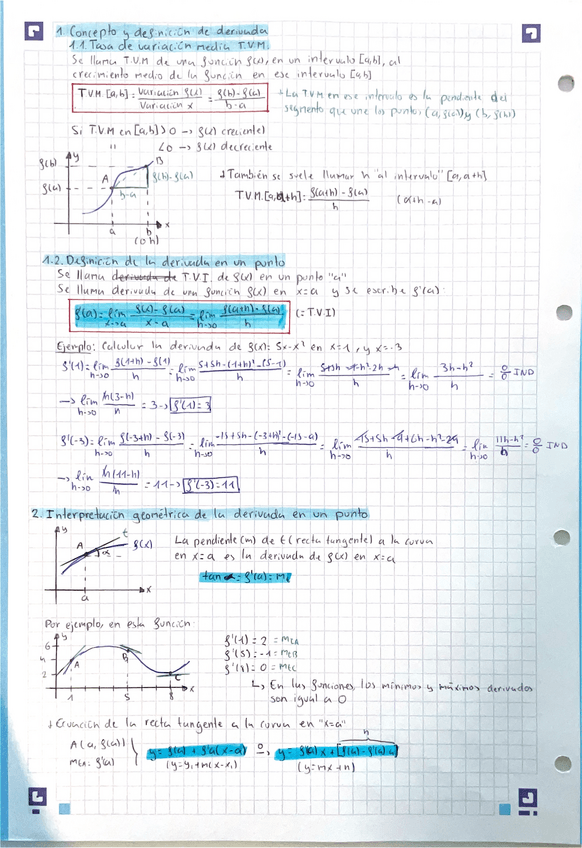 1. Concepto y definición de derivada
1.1. Tasa de variación media T.V.M.
Se llama T.V.M de una función f(x), en un intervalo [a,b], al
crecimiento medio de la función en ese intervalo [a,b]
T.V.M [a,b] = Variación f(x) / Variación x = f(b)-f(a) / b-a
La TVM en ese intervalo es la pendiente del
segmento que une los puntos (a, f(a)) y (b, f(b))
Si T.V.M en [a,b] > 0 → f(x) creciente)
" < 0 → f(x) decreciente
y
f(b)
f(a)
A
B
f(b)-f(a)
b-a
a
b
x
También se suele llamar h "al intervalo" [a, a+h]
T.V.M. [a, a+h] = f(a+h) - f(a) / h
1.2. Definición de la derivada en un punto
Se llama derivada de T.V.I. de f(x) en un punto "a"
Se llama derivada de una función f(x) en x=a y se escribe f'(a):
f'(a) = lim x→a f(x) - f(a) / x-a = lim h→0 f(a+h) - f(a) / h (= T.V.I)
Ejemplo: Calcular la derivada de f(x): 5x-x² en x=1, y x=-3
f'(1) = lim h→0 f(1+h) - f(1) / h = lim h→0 5+5h-(1+h)²-(5-1) / h = lim h→0 5+5h-1-h²-2h-4 / h = lim h→0 3h-h² / h = 0/0 IND
→ lim h→0 h(3-h) / h = 3 → f'(1) = 3
f'(-3) = lim h→0 f(-3+h) - f(-3) / h = lim h→0 -15+5h-(-3+h)²-(-15-9) / h = lim h→0 -15+5h-9+6h-h²-24 / h = lim h→0 11h-h² / h = 0/0 IND
→ lim h→0 h(11-h) / h = 11 → f'(-3) = 11
2. Interpretación geométrica de la derivada en un punto
y
t
A
α
f(x)
a
x
La pendiente (m) de t (recta tangente) a la curva
en x=a es la derivada de f(x) en x=a
tan α = f'(a) = mt
Por ejemplo, en esta función
6
y
4
2
A
B
C
1
5
8
x
f'(1) = 2 = mtA
f'(5) = -1 = mtB
f'(8) = 0 = mtC
En las funciones, los mínimos y máximos derivados
son igual a 0
Ecuación de la recta tangente a la curva en "x=a"
A (a, f(a))
mtA = f'(a)
y = f(a) + f'(a)(x-a) o, y = f'(a)x + [f(a) - f'(a)·a]
n
(y = y₁ + m(x-x₁)
(y = mx + n)